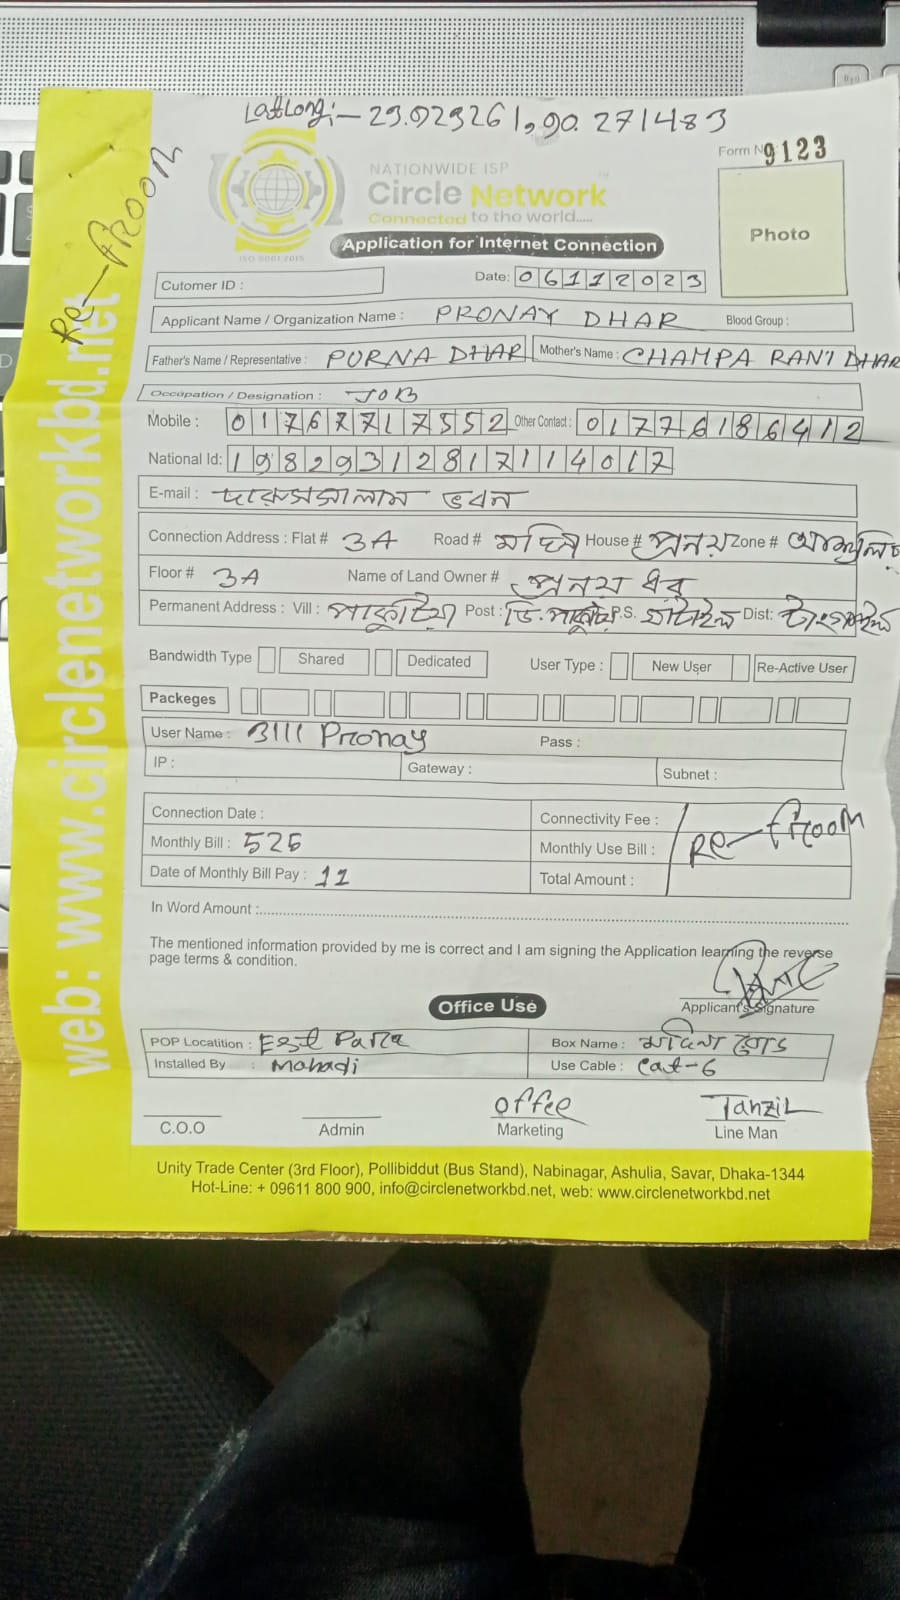 LatLong:- 23.923261,90.271483
Re-froom
Form No 9123
NATIONWIDE ISP
Circle Network
Connected to the world.....
ISO 9001:2015
Application for Internet Connection
Photo
Cutomer ID :
Date: 06112023
Applicant Name / Organization Name : PRONAY DHAR Blood Group :
Father's Name / Representative : PURNA DHAR Mother's Name : CHAMPA RANI DHAR
Occupation / Designation : JOB
Mobile : 01767717552 Other Contact : 01776186412
National Id: 19829312817114017
E-mail : ভবন
Connection Address : Flat # 3A Road # House # প্রনয় Zone #
Floor # 3A Name of Land Owner # প্রনয় ধর
Permanent Address : Vill : পাকুটিয়া Post : ডি. পাকুটিয়া P.S. ঘাটাইল Dist: টাংগাইল
Bandwidth Type Shared Dedicated User Type : New User Re-Active User
Packeges
User Name : 3111 Pronay Pass :
IP : Gateway : Subnet :
Connection Date : Connectivity Fee :
Monthly Bill : 525 Monthly Use Bill : Re-froom
Date of Monthly Bill Pay : 11 Total Amount :
In Word Amount :
The mentioned information provided by me is correct and I am signing the Application learning the reverse
page terms & condition.
Applicant's Signature
Office Use
POP Locatition : East Para Box Name : রোড
Installed By : Mahadi Use Cable : Cat-6
C.O.O Admin offee Marketing Tanzil Line Man
Unity Trade Center (3rd Floor), Pollibiddut (Bus Stand), Nabinagar, Ashulia, Savar, Dhaka-1344
Hot-Line: + 09611 800 900, info@circlenetworkbd.net, web: www.circlenetworkbd.net
web: www.circlenetworkbd.net